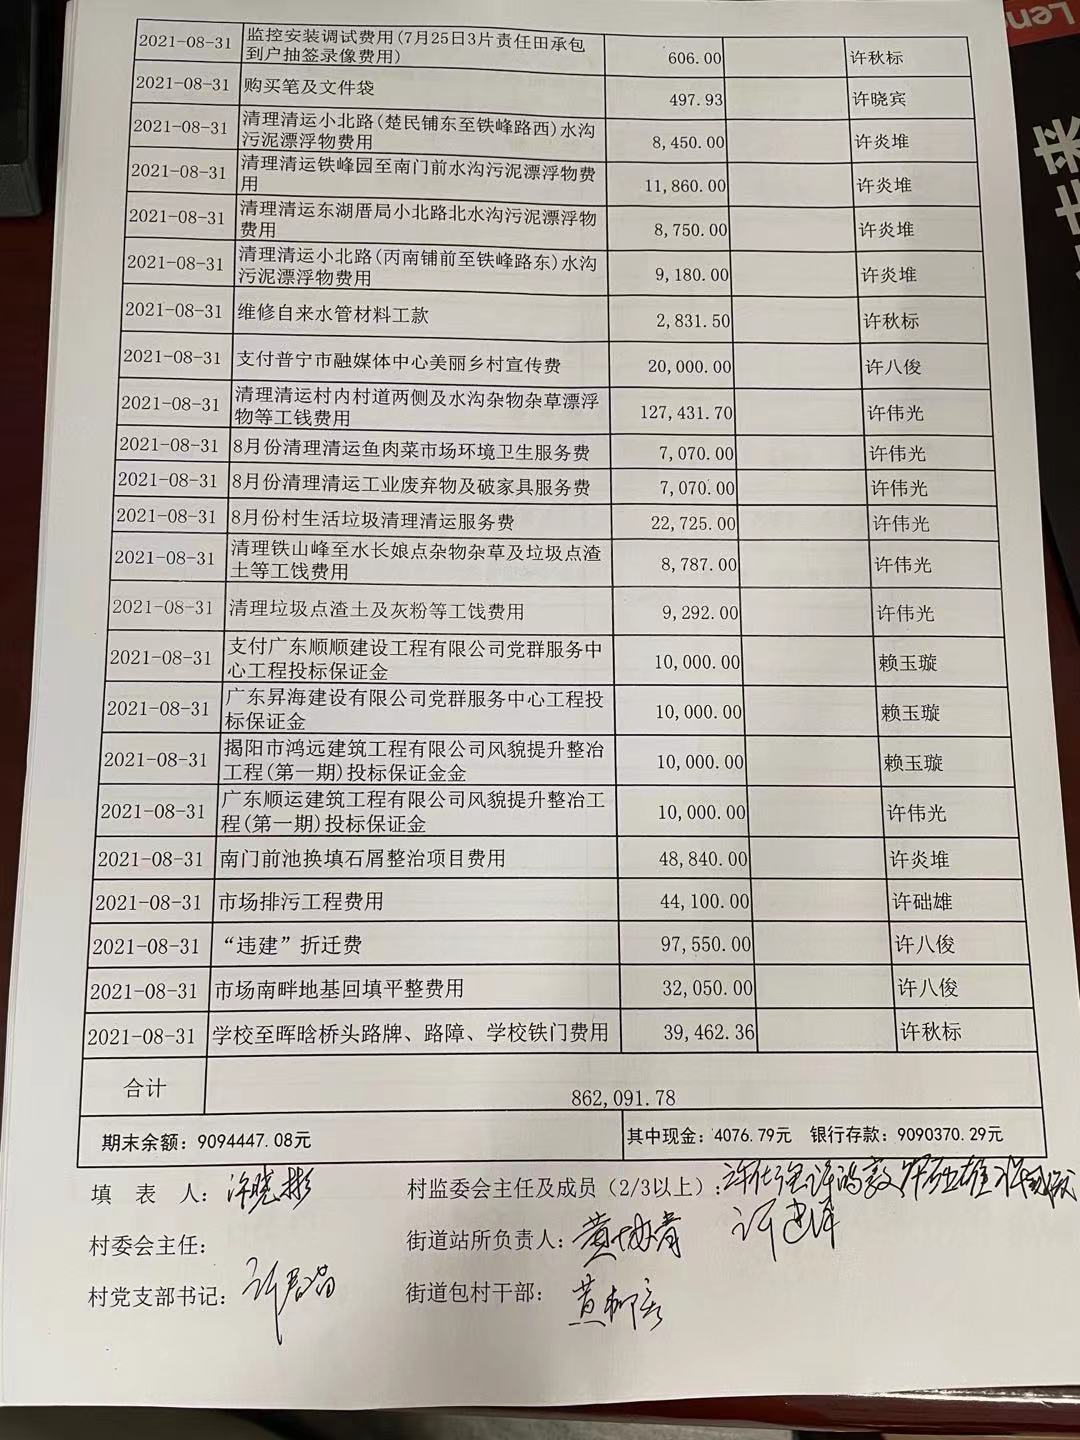 Len
2021-08-31 监控安装调试费用(7月25日3片责任田承包 606.00 许秋标
到户抽签录像费用)
2021-08-31 购买笔及文件袋 497.93 许晓宾
2021-08-31 清理清运小北路(楚民铺东至铁峰路西)水沟 8,450.00 许炎堆
污泥漂浮物费用
2021-08-31 清理清运铁峰园至南门前水沟污泥漂浮物费 11,860.00 许炎堆
用
2021-08-31 清理清运东湖厝局小北路北水沟污泥漂浮物 8,750.00 许炎堆
费用
2021-08-31 清理清运小北路(丙南铺前至铁峰路东)水沟 9,180.00 许炎堆
污泥漂浮物费用
2021-08-31 维修自来水管材料工款 2,831.50 许秋标
2021-08-31 支付普宁市融媒体中心美丽乡村宣传费 20,000.00 许八俊
2021-08-31 清理清运村内村道两侧及水沟杂物杂草漂浮 127,431.70 许伟光
物等工钱费用
2021-08-31 8月份清理清运鱼肉菜市场环境卫生服务费 7,070.00 许伟光
2021-08-31 8月份清理清运工业废弃物及破家具服务费 7,070.00 许伟光
2021-08-31 8月份村生活垃圾清理清运服务费 22,725.00 许伟光
2021-08-31 清理铁山峰至水长娘点杂物杂草及垃圾点渣 8,787.00 许伟光
土等工饯费用
2021-08-31 清理垃圾点渣土及灰粉等工饯费用 9,292.00 许伟光
2021-08-31 支付广东顺顺建设工程有限公司党群服务中 10,000.00 赖玉璇
心工程投标保证金
2021-08-31 广东昇海建设有限公司党群服务中心工程投 10,000.00 赖玉璇
标保证金
2021-08-31 揭阳市鸿远建筑工程有限公司风貌提升整治 10,000.00 赖玉璇
工程(第一期)投标保证金金
2021-08-31 广东顺运建筑工程有限公司风貌提升整治工 10,000.00 许伟光
程(第一期)投标保证金
2021-08-31 南门前池换填石屑整治项目费用 48,840.00 许炎堆
2021-08-31 市场排污工程费用 44,100.00 许础雄
2021-08-31 “违建”折迁费 97,550.00 许八俊
2021-08-31 市场南畔地基回填平整费用 32,050.00 许八俊
2021-08-31 学校至晖晗桥头路牌、路障、学校铁门费用 39,462.36 许秋标
合计 862,091.78
期末余额：9094447.08元 其中现金：4076.79元 银行存款：9090370.29元
填 表 人：许晓彬 村监委会主任及成员（2/3以上）：
村委会主任： 街道站所负责人：
村党支部书记： 街道包村干部：